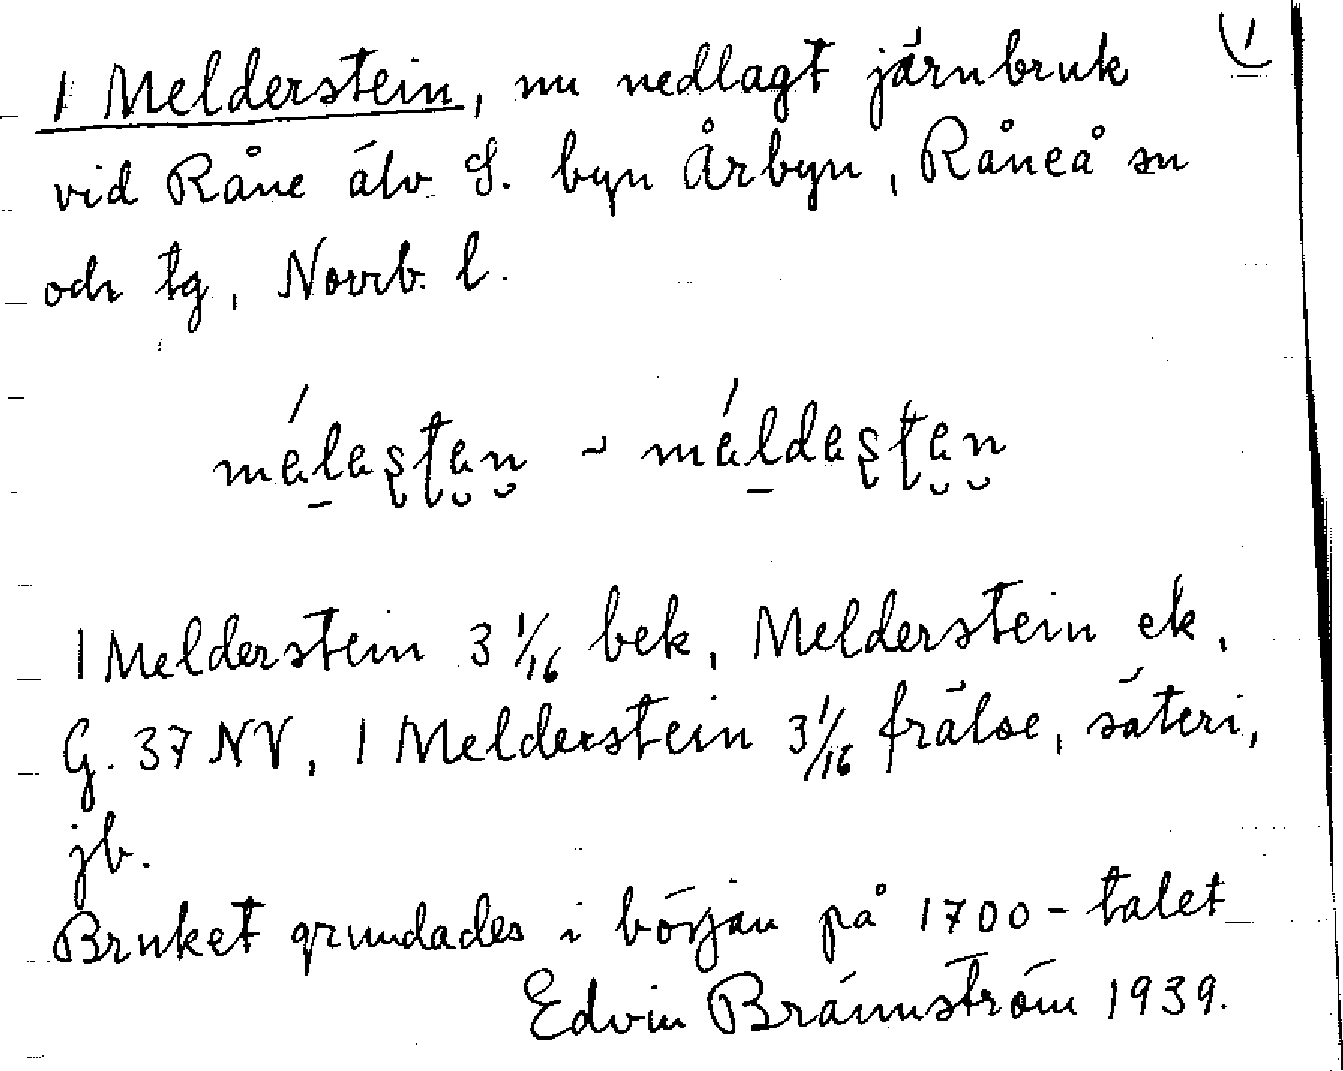 1
1 Melderstein, nu nedlagt järnbruk
vid Råne älv S. byn Årbyn, Råneå sn
och tg, Norrb. l.
málaștan ~ máldaștan
1 Melderstein 3 1/16 bek, Melderstein ek,
G. 37 NV, 1 Melderstein 3 1/16 frälse, säteri,
jb.
Bruket grundades i början på 1700-talet
Edvin Brännström 1939.